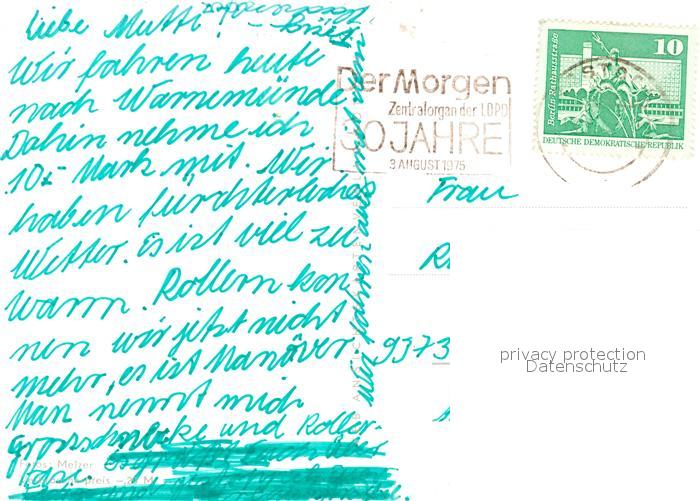 Liebe Mutti!
Wir fahren heute
nach Warnemünde.
Dahin nehme ich
10,- Mark mit. Wir
haben fürchterliches
Wetter. Es ist viel zu
warm. Rollern kön
nen wir jetzt nicht
mehr, es ist Manöver.
Man nennt mich
Grossschnecke und Roller-
Fotos: Melzer
preis
Der Morgen
Zentralorgan der LDPD
30 JAHRE
3 AUGUST 1975
10
Berlin, Rathausstraße
DEUTSCHE DEMOKRATISCHE REPUBLIK
Frau
R
9373
privacy protection
Datenschutz